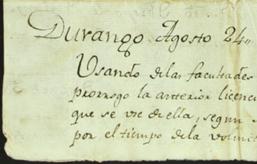 Durango Agosto 24
Usando de las facultades
prorrogo la anterior licenc
que se vee de ella, segun
por el tiempo de la volunt